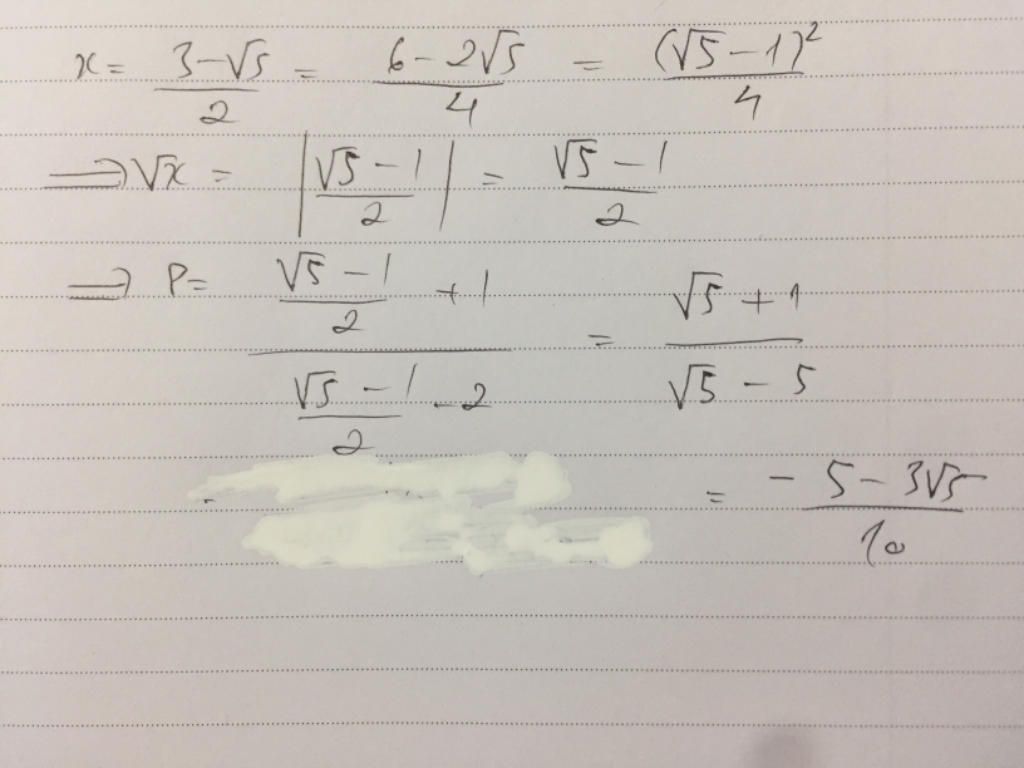 x = (3-√5)/2 = (6-2√5)/4 = (√5-1)²/4
⟹ √x = |(√5-1)/2| = (√5-1)/2
⟹ P = ((√5-1)/2 + 1)/((√5-1)/2 - 2) = (√5+1)/(√5-5)
= (-5-3√5)/10